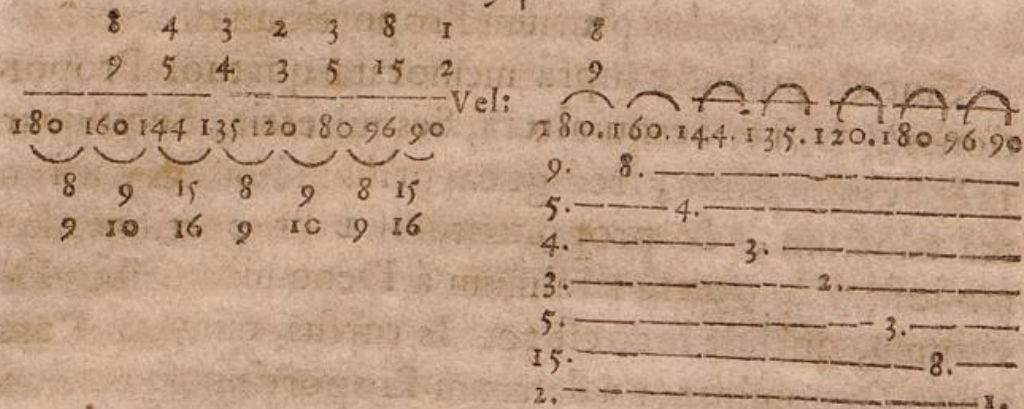 8 4 3 2 3 8 1
9 5 4 3 5 15 2
180 160 144 135 120 80 96 90
8 9 15 8 9 8 15
9 10 16 9 10 9 16
Vel:
8
9
180. 160. 144. 135. 120. 180 96. 90
9. 8.
5. 4.
4. 3.
3. 2.
5. 3.
15. 8.
2. 1.